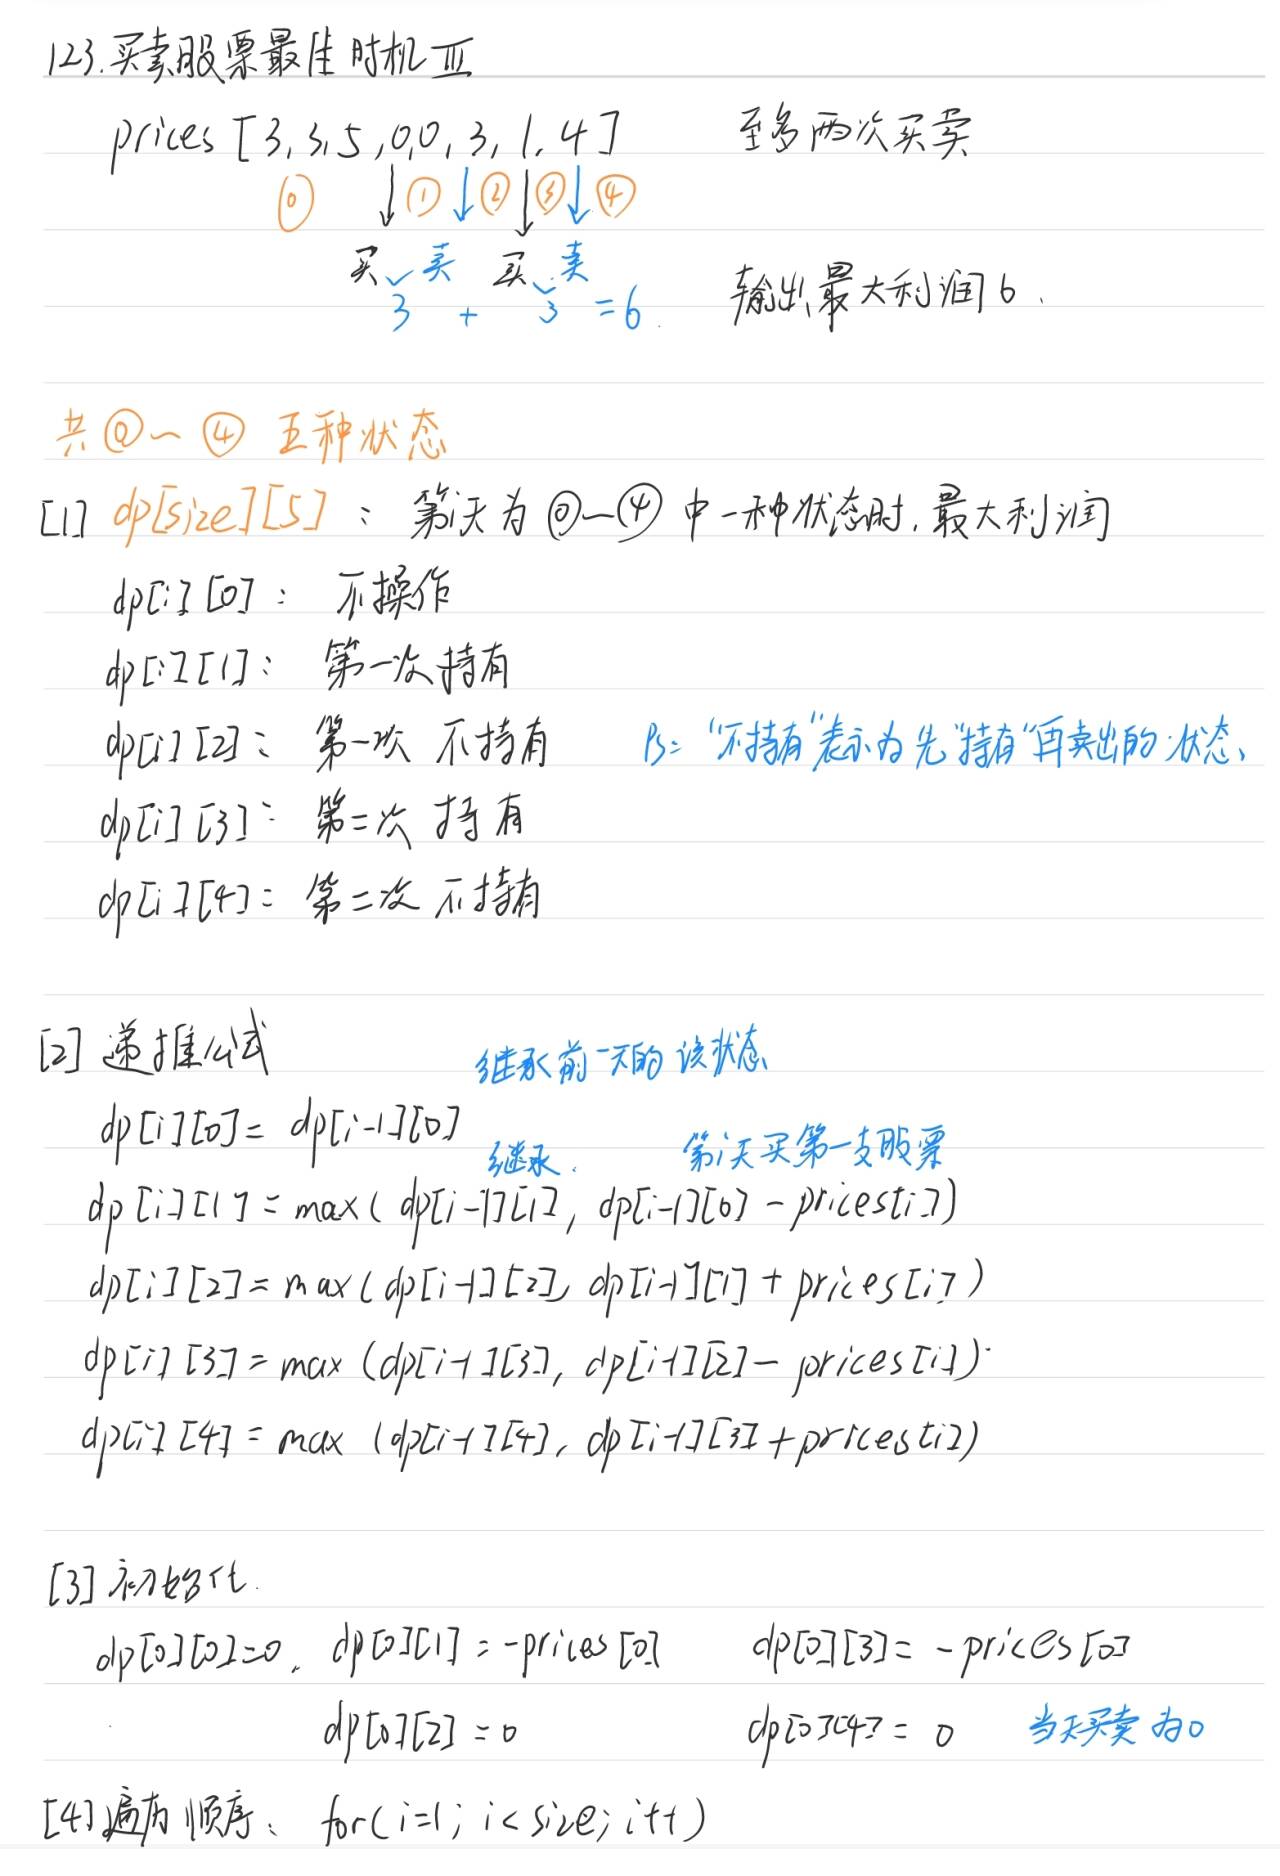 123.买卖股票最佳时机 III
prices [3,3,5,0,0,3,1,4] 至多两次买卖
⓪ ① ② ③ ④
买 卖 买 卖
3 + 3 = 6. 输出最大利润6.
共⓪~④ 五种状态
[1] dp[size][5]: 第i天为⓪~④中一种状态时,最大利润
dp[i][0]: 不操作
dp[i][1]: 第一次持有
dp[i][2]: 第一次 不持有 PS: "不持有"表示为先"持有"再卖出的状态、
dp[i][3]: 第二次 持有
dp[i][4]: 第二次 不持有
[2] 递推公式
继承前一天的该状态
dp[i][0] = dp[i-1][0]
继承. 第i天买第一支股票
dp[i][1] = max(dp[i-1][1], dp[i-1][0] - prices[i])
dp[i][2] = max(dp[i-1][2], dp[i-1][1] + prices[i])
dp[i][3] = max(dp[i-1][3], dp[i-1][2] - prices[i])
dp[i][4] = max(dp[i-1][4], dp[i-1][3] + prices[i])
[3] 初始化.
dp[0][0]=0. dp[0][1] = -prices[0] dp[0][3] = -prices[0]
dp[0][2] = 0 dp[0][4] = 0 当天买卖为0
[4] 遍历顺序: for(i=1; i<size; i++)